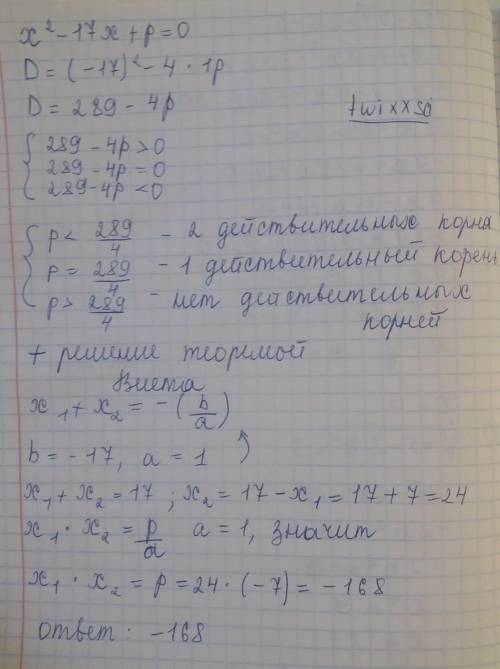 x² - 17x + p = 0
D = (-17)² - 4 · 1p
D = 289 - 4p
twixxso
289 - 4p > 0
289 - 4p = 0
289 - 4p < 0
p < 289/4 - 2 действительных корня
p = 289/4 - 1 действительный корень
p > 289/4 - нет действительных
корней
+ решение теоремой
Виета
x₁ + x₂ = - (b/a)
b = -17, a = 1
x₁ + x₂ = 17 ; x₂ = 17 - x₁ = 17 + 7 = 24
x₁ · x₂ = p/a a = 1, значит
x₁ · x₂ = p = 24 · (-7) = -168
ответ: -168